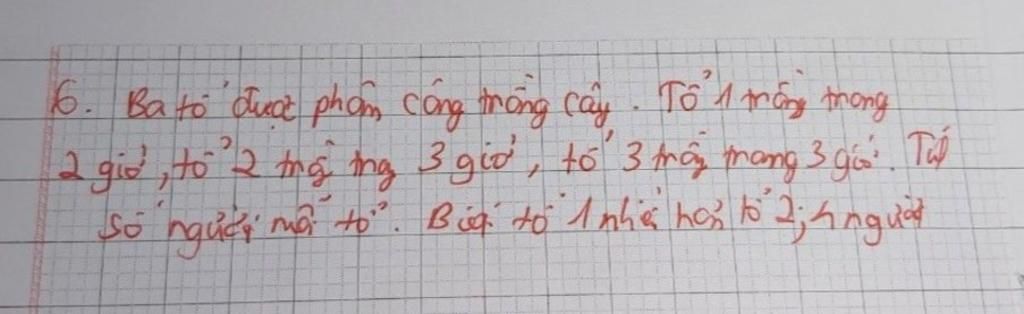 6. Ba tổ được phân công trồng cây. Tổ 1 trồng trong
2 giờ, tổ 2 trồng trong 3 giờ, tổ 3 trồng trong 3 giờ. Tính
số người mỗi tổ. Biết tổ 1 nhiều hơn tổ 2; 4 người